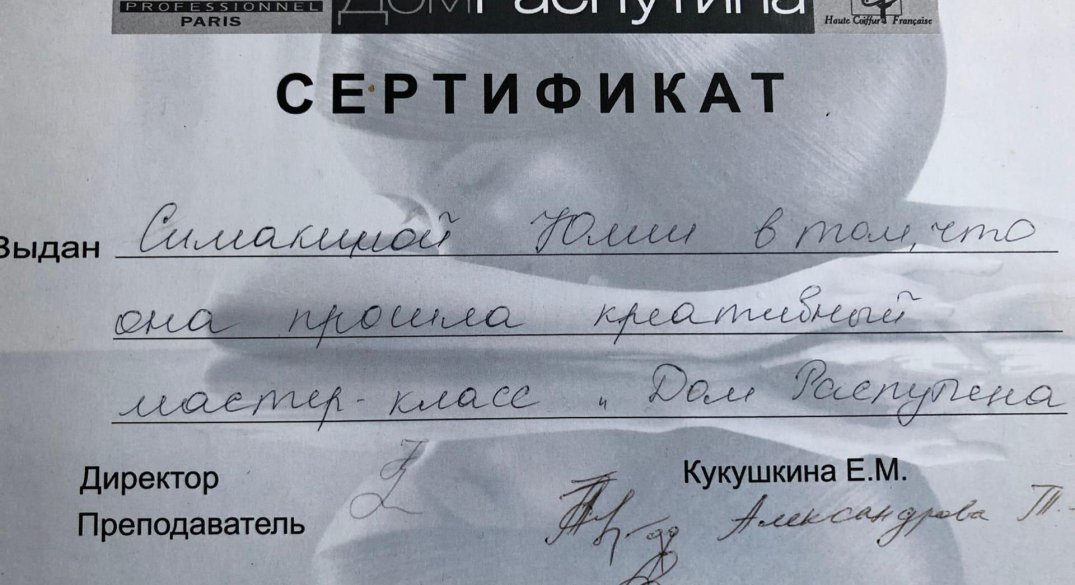 PROFESSIONNEL
PARIS
ДомРаспутина
Haute Coiffure Française
СЕРТИФИКАТ
Выдан Симакиной Юлии в том, что
она прошла креативный
мастер-класс „ Дом Распутина
Директор Кукушкина Е.М.
Преподаватель Александрова Т.